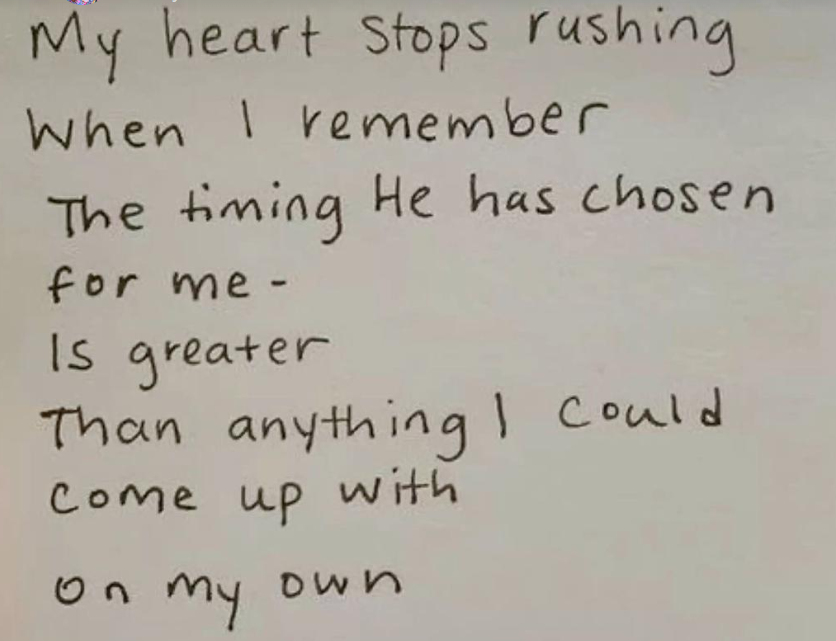 My heart stops rushing
When I remember
The timing He has chosen
for me -
Is greater
Than anything I could
come up with
on my own